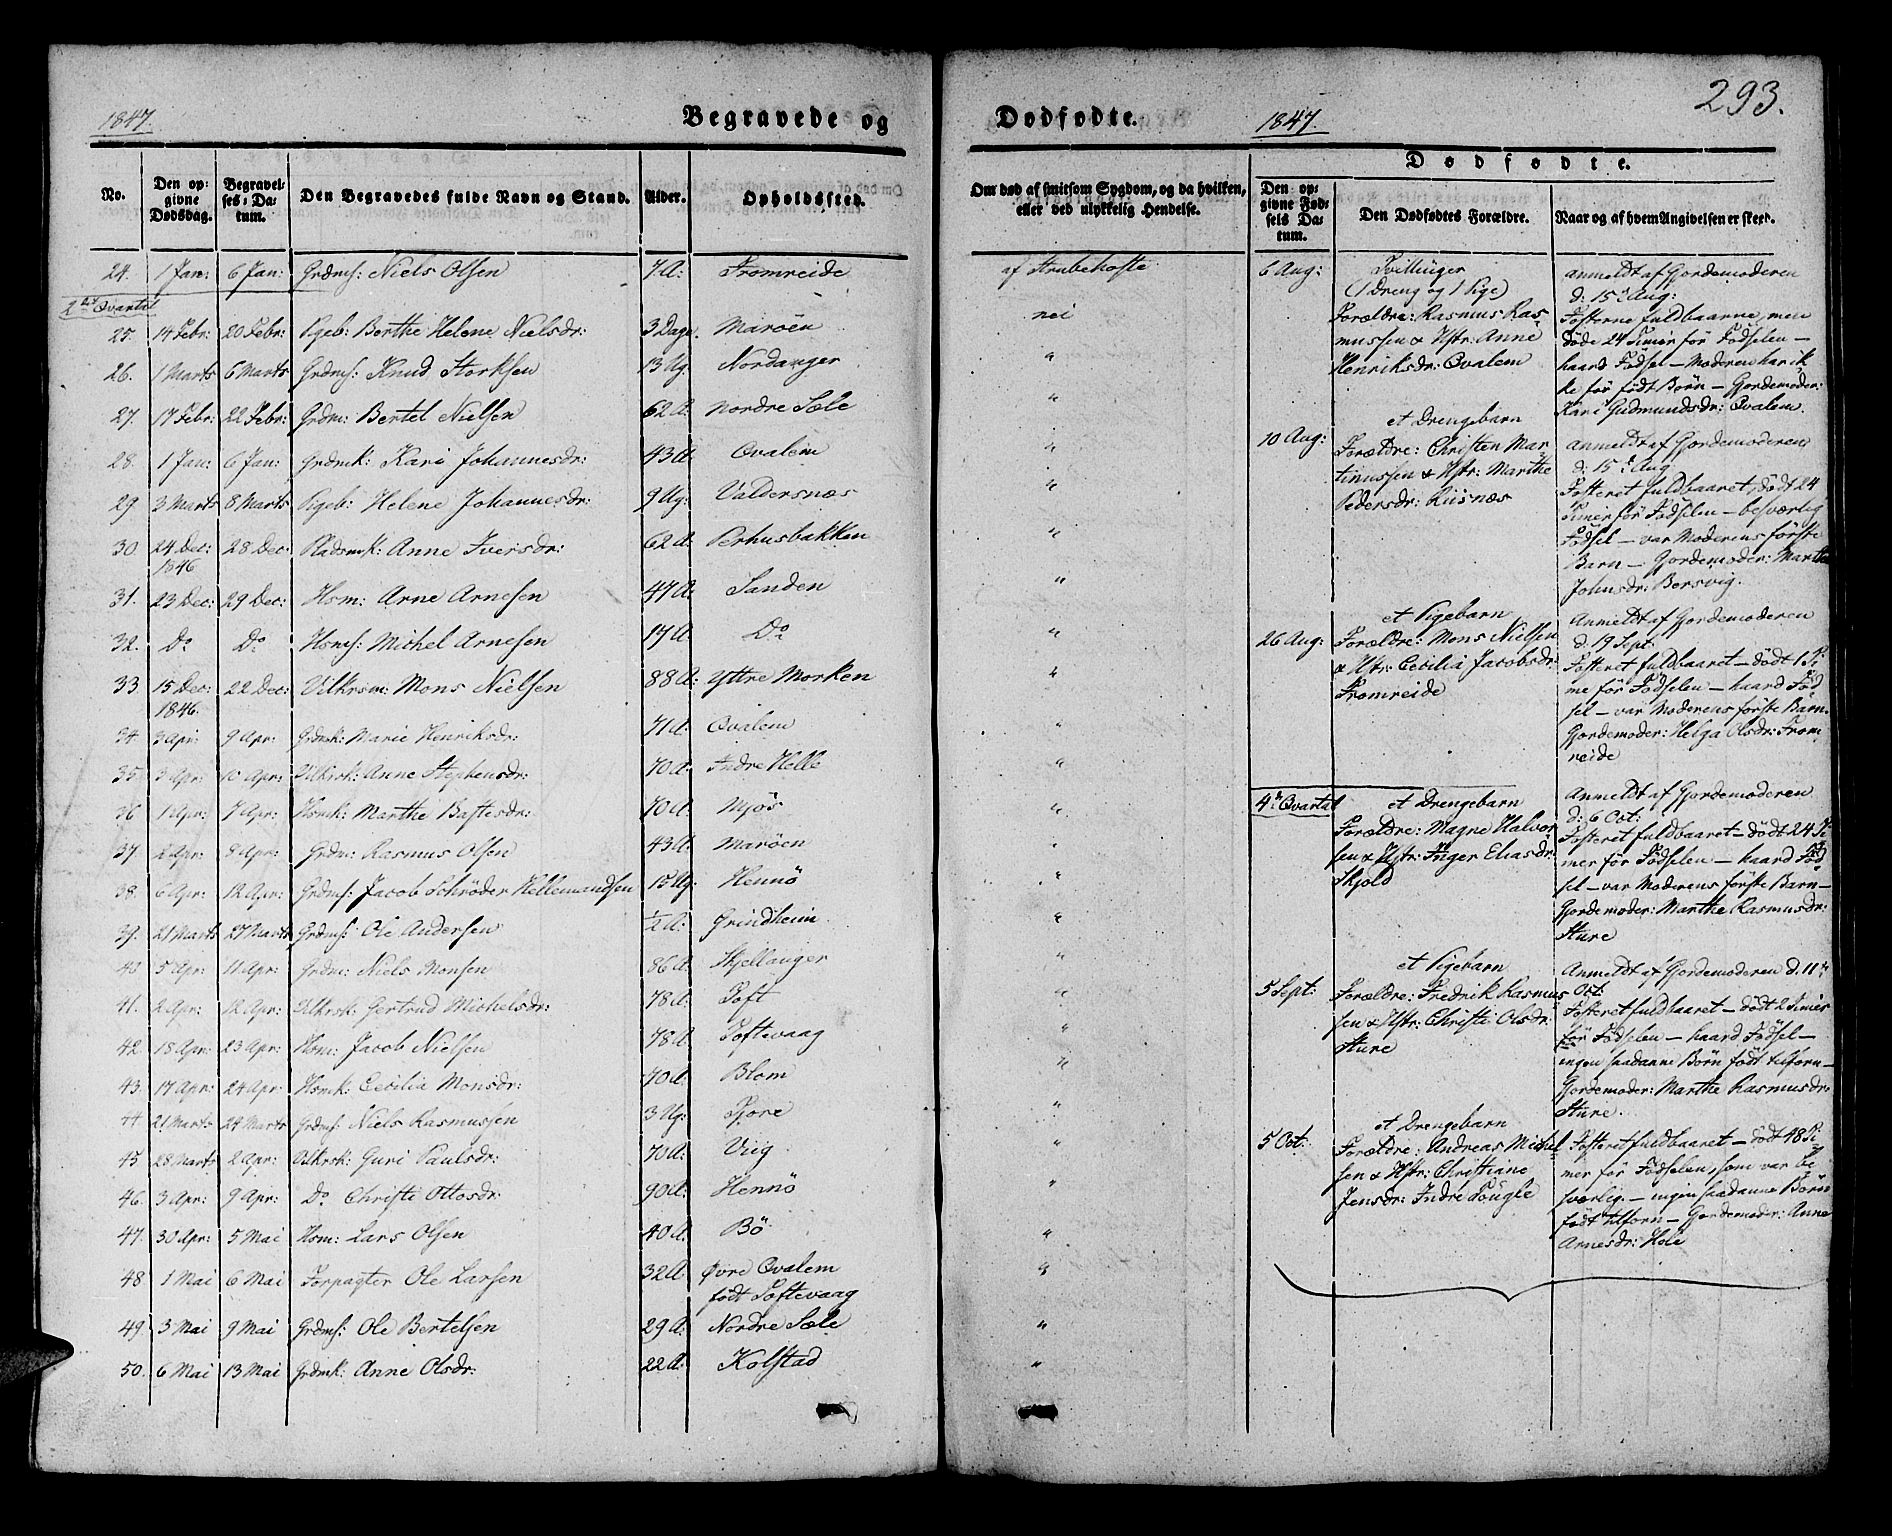 293.
1847.
Begravede og
Dødfødte.
1847.
No.
Den opgivne Dødsdag.
Begravelses-Datum.
Den Begravedes fulde Navn og Stand.
Alder.
Opholdssted.
Om død af smitsom Sygdom, og da hvilken, eller ved ulykkelig Hendelse.
24. 1 Jan: 6 Jan: Grdms: Niels Olsen 7 A: Fromreide af Strubehoste
2det Qvartal
25. 14 Febr: 20 Febr: Pgeb: Berthe Helene Nielsdr: 3 Dage Marøen nei
26. 1 Marts 6 Marts Grdms: Knud Storksen 13 Ug: Nordanger "
27. 17 Febr: 22 Febr: Grdm: Bertel Nielsen 62 A: Nordre Sæle "
28. 1 Jan: 6 Jan: Grdmk: Kari Johannesdr: 43 A: Qvalem "
29 3 Marts 8 Marts Pgeb: Helene Johannesdr: 9 Ug: Valdersnæs "
30. 24 Dec: 28 Dec: Pladsmk: Anne Iversdr: 62 A: Perhusbakken "
1846
31. 23 Dec: 29 Dec: Hsm: Arne Arnesen 47 A: Sanden "
32. Do Do Hsms: Michel Arnesen 17 A: Do "
33. 15 Dec: 22 Dec: Vilkrsm: Mons Nielsen 88 A: Yttre Morken "
1846.
34. 3 Apr: 9 Apr: Grdmk: Marie Henriksdr: 71 A: Qvalem "
35. 3 Apr: 10 Apr: Vilkrsk: Anne Stephensdr: 70 A: Indre Helle "
36 1 Apr: 7 Apr: Hsmk: Marthe Bastesdr: 70 A: Mjøs "
37. 2 Apr: 8 Apr: Grdm: Rasmus Olsen 43 A: Marøen "
38. 6 Apr: 12 Apr: Grdms: Jacob Schrøder Hellemandsen 15 Ug: Hennø "
39. 21 Marts 27 Marts Grdms: Ole Andersen 1/2 A: Grindheim "
40 5 Apr: 11 Apr: Grdm: Niels Monsen 86 A: Skjellanger "
41. 2 Apr: 12 Apr: Vilkrsk: Gertrud Michelsdr: 78 A: Toft "
42. 18 Apr: 23 Apr: Hsm: Jacob Nielsen 78 A: Toftevaag "
43. 17 Apr: 24 Apr: Hsmk: Cecilia Monsdr: 70 A: Blom "
44. 21 Marts 24 Marts Grdms: Niels Rasmussen 3 Ug: Tjore "
45 28 Marts 2 Apr: Vilkrsk: Guri Paulsdr: 70 A: Viig "
46. 3 Apr: 9 Apr: Do Christi Ottesdr: 90 A: Hennø "
47. 30 Apr: 5 Mai Hsm: Lars Olsen 40 A: Bø "
48 1 Mai 6 Mai Forpagter Ole Larsen 32 A. Øvre Qvalem "
født Toftevaag
49 3 Mai 9 Mai Grdms: Ole Bertelsen 29 A: Nordre Sæle "
50. 6 Mai 13 Mai Grdmk: Anne Olsdr: 22 A: Kolstad "
Dødfødte.
Den opgivne Fødsels Datum.
Den Dødfødtes Forældre.
Naar og af hvem Angivelsen er skeed.
6 Aug:
Tvillinger
(1 Dreng og 1 Pige)
Forældre: Rasmus Ras-
mussen & Hstr: Anne
Henriksdr: Qvalem
anmeldt af Gjordemoderen
d: 15de Aug:
Fosterne fuldbaarne, men
døde 24 Timer før Fødselen –
haard Fødsel – Moderen har ik-
ke før født Børn – Gjordemoder:
Kari Gudmundsdr: Qvalem.
10 Aug:
et Drengebarn
Forældre: Christen Mar-
tinussen & Hstr: Marthe
Pedersdr: Risnæs
anmeldt af Gjordemoderen
d: 15de Aug
Fosteret fuldbaaret, dødt 24
Timer før Fødselen – besværlig
Fødsel – var Moderens første
Barn – Gjordemoder: Marthe
Johnsdr: Børsvig.
26 Aug:
et Pigebarn
Forældre: Mons Nielsen
& Hstr: Cecilia Jacobsdr:
Fromreide
Anmeldt af Gjordemoderen
d. 19 Sept:
Fosteret fuldbaaret – dødt 1 Ti-
me før Fødselen – haard Fød-
sel – var Moderens første Barn.
Gjordemoder: Helga Olsdr: From-
reide
4de Qvartal
et Drengebarn
Forældre: Magne Halvor-
sen & Hstr: Inger Eliasdr:
Skjold
Anmeldt af Gjordemoderen
d: 6 Oct:
Fosteret fuldbaaret – dødt 24 Ti-
mer før Fødselen – haard Fød-
sel – var Moderens første Barn –
Gjordemoder: Marthe Rasmusdr:
Sture
5 Sept:
et Pigebarn
Forældre: Fredrik Rasmus-
sen & Hstr: Christi Olsdr:
Sture
Anmeldt af Gjordemoderen d. 11te
Oct:
Fosteret fuldbaaret – dødt 2 Timer
før Fødselen – haard Fødsel –
ingen saadanne Børn født tilforn –
Gjordemoder: Marthe Rasmusdr:
Sture.
5 Oct:
et Drengebarn
Forældre: Andreas Michel-
sen & Hstr: Christiane
Jensdr: Indre Tougle
Fosteret fuldbaaret – dødt 48 Ti-
mer før Fødselen, som var be-
sværlig. – ingen saadanne Børn
født tilforn – Gjordemoder: Anne
Arnesdr: Hole